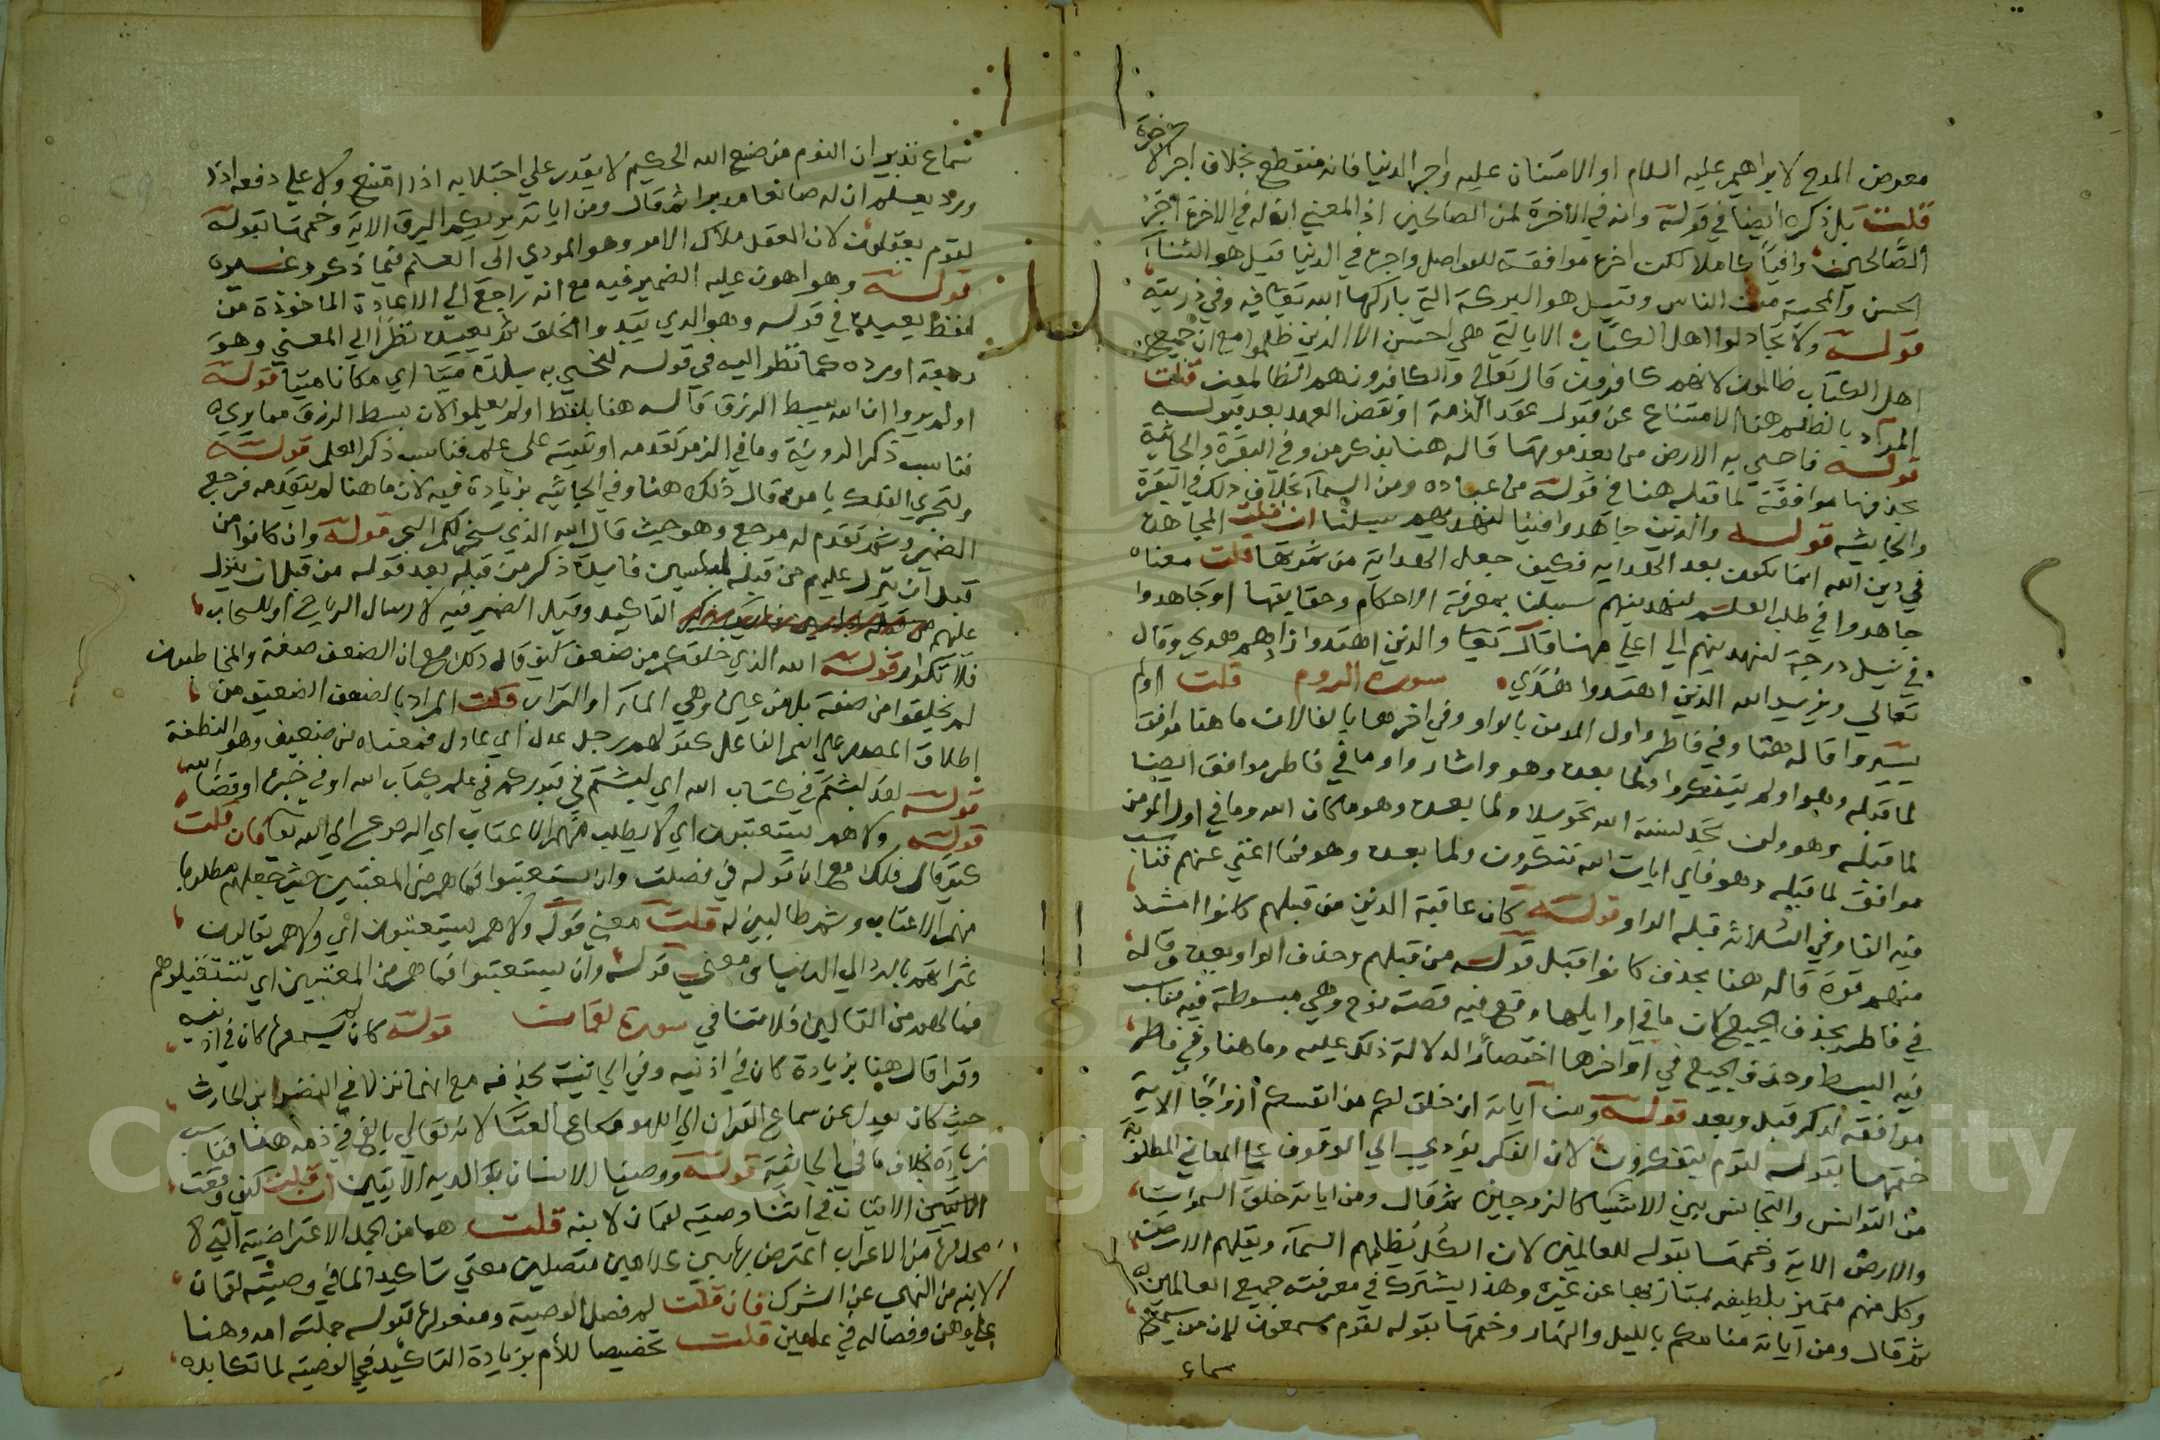 معرض المدح لابراهيم عليه السلام او الامتنان عليه واجر الدنيا فانه منقطع بخلاف اجر الاخرة
قلت بل ذكره ايضا في قوله وانه في الاخرة لمن الصالحين اذ المعني ان له في الاخرة اجر
الصالحين وافيا كاملا لكن اخره موافقة للفواصل واجره في الدنيا قيل هو الثناء
الحسن والمحبة من الناس وقيل هو البركة التي باركها الله تعا فيه وفي ذريته
قوله ولا تجادلوا اهل الكتاب الا بالتي هي احسن الا الذين ظلموا مع ان جميع
اهل الكتاب ظالمون لانهم كافرون قال تعالي والكافرون هم الظالمون قلت
المراد بالظلم هنا الامتناع عن قبول عقد الذمة او نقض العهد بعد قبوله
قوله فاحيي به الارض من بعد موتها قاله هنا بذكر من وفي البقرة والجاثية
بحذفها موافقة لما قبله هنا في قوله من عباده ومن السماء بخلاف ذلك في البقرة
والجاثيه قوله والذين جاهدوا فينا لنهدينهم سبلنا ان قلت المجاهده
في دين الله انما تكون بعد الهدايه فكيف جعل الهداية من ثمرتها قلت معناه
جاهدوا في طلب العلم لنهدينهم سبيلنا بمعرفة الاحكام وحقايقها او جاهدوا
في نيل درجة لنهدينهم الي اعلي منها قال تعا والذين اهتدوا زادهم هدي وقال
تعالي ويزيد الله الذين اهتدوا هدي سورة الروم قلت اولم
يسيروا قاله هنا وفي فاطر واول المومن بالواو وفي اخرها بالفا لان ما هنا موافق
لما قبله وهو اولم يتفكروا ولما بعده وهو واثاروا وما في فاطر موافق ايضا
لما قبله وهو ولن تجد لسنة الله تحويلا ولما بعده وهو ما كان الله وما في اول المومن
موافق لما قبله وهو فاي ايات الله تنكرون ولما بعده وهو فما اغني عنهم فناسب
فيه الفا وفي الثلاثه قبله الواو قوله كان عاقبة الذين من قبلهم كانوا اشد
منهم قوة قاله هنا بحذف كانوا قبل قوله من قبلهم وحذف الواو بعده وقاله
في فاطر بحذف الجميع كان ما في اوايلها وقع فيه قصة نوح وهي مبسوطة فيه فناسب
فيه البسط وحذف الجميع في اواخرها اختصارا لدلالة ذلك عليه وما هنا وفي فاطر
موافقه لذكر قبل وبعد قوله ومن آياته ان خلق لكم من انفسكم ازواجا الاية
ختمها بقوله لقوم يتفكرون لان الفكر يؤدي الي الوقوف علي المعاني المطلوبة
من التوانس والتجانس بين الاشيا كالزوجين ثم قال ومن اياته خلق السموات
والارض الاية وختمها بقوله للعالمين لان الكل يظلهم السماء ويقلهم الارض
وكل منهم متميز بلطيفه يمتاز بها عن غيره وهذا يشترك في معرفته جميع العالمين
ثم قال ومن اياته منامكم بالليل والنهار وختمها بقوله لقوم يسمعون لان من سمع
سماع
سماع تدبر ان النوم من صنع الله الحكيم لا يقدر علي اجتلابه اذا امتنع ولا علي دفعه اذا
ورد يعلم ان له صانعا مدبرا ثم قال ومن اياته يريكم البرق الاية وختمها بقوله
لقوم يعقلون لان العقل ملاك الامر وهو المودي الي العلم فيما ذكر وغيره
قوله وهو اهون عليه الضمير فيه مع انه راجع الي الاعادة الماخوذة من
لفظ يعيده في قوله وهو الذي يبدوا الخلق ثم يعيده نظرا الي المعني وهو
رجعه او رده كما نظر اليه في قوله لنحيي به بلدة ميتا اي مكانا ميتا قوله
اولم يروا ان الله يبسط الرزق قاله هنا بلفظ اولم يعلموا لان بسط الرزق مما يري
فناسب ذكر الروية وما في الزمر تقدمه اوتيته علي علم فناسب ذكر العلم قوله
ولتجري الفلك بامره قال ذلك هنا وفي الجاثيه بزيادة فيه لان ما هنا لم يتقدمه مرجع
الضمير وثم تقدم له مرجع وهو حيث قال الله الذي سخر لكم البحر قوله وان كانوا من
قبل ان ينزل عليهم من قبله لمبلسين فايدة ذكر من قبله بعد قوله من قبل ان ينزل
عليهم التاكيد وقيل الضمير فيه لارسال الرياح او للسحاب
فلا تكرار قوله الله الذي خلقكم من ضعف كيف قال ذلك مع ان الضعف صفة والمخاطبون
لم يخلقوا من صفة بل من عين وهي الماء او التراب قلت المراد بالضعف الضعيف من
اطلاق المصدر علي اسم الفاعل كقولهم رجل عدل اي عادل فمعناه من ضعيف وهو النطفة
قوله لقد لبثتم في كتاب الله اي لبثتم في قبوركم في علم كتاب الله او في خبره او قضاء الله
قوله ولا هم يستعتبون اي لا يطلب منهم الاعتاب اي الرجوع الي الله تعا فان قلت
كيف قال ذلك مع ان قوله في فصلت وان يستعتبوا فما هم من المعتبين حيث جعلهم مطلوبا
منهم الاعتاب وثم طالبين له قلت معني قوله ولا هم يستعتبون اي ولا هم يقالون
عثراتهم بالرد الي الدنيا ومعني قوله وان يستعتبوا فما هم من المعتبين اي تستقيلوهم
فما هم من القالين فلا تنافي سورة لقمان قوله كان لم يسمعها كان في اذنيه
وقرا قال هنا بزيادة كان في اذنيه وفي الجاثية بحذفه مع انهما نزلا في النضر ابن الحارث
حيث كان يعدل عن سماع القران الي اللهو وسماع الغنا لانه تعالي بالغ في ذمه هنا فناسب
زيادة بخلاف ما في الجاثية قوله ووصينا الانسان بوالديه الايتين ان قلت كيف وقعت
الايتين الاثنان في اثنا وصية لقمان لابنه قلت هما من الجمل الاعتراضية التي لا
محل لها من الاعراب اعترض بها بين كلامين متصلين معني تاكيدا لما في وصية لقمان
لابنه من النهي عن الشرك فان قلت لم فصل الوصية ومفعولها بقوله حملته امه وهنا
علي وهن وفصاله في عامين قلت تخصيصا للأم بزيادة التاكيد في الوصية لما تكابده